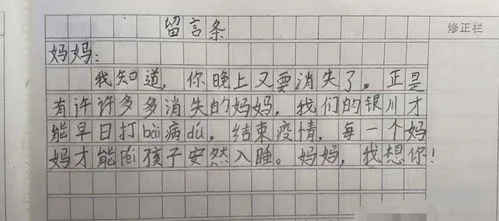 留言条
修正栏
妈妈：
我知道，你晚上又要消失了。正是
有许许多多消失的妈妈，我们的银川才
能早日打bài病dú，结束疫情，每一个妈
妈才能陪孩子安然入睡。妈妈，我想你！